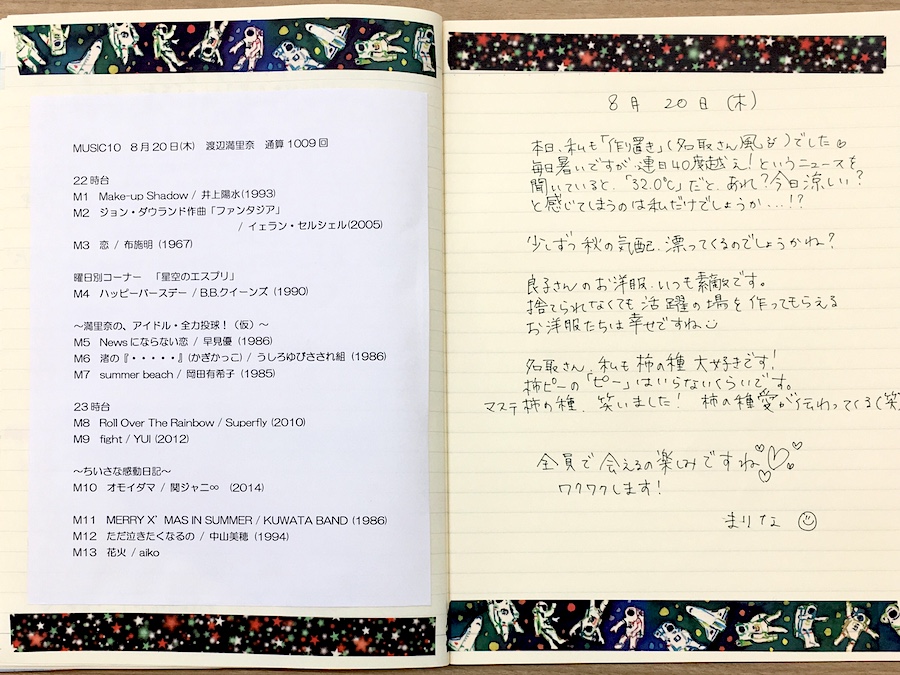 MUSIC10　8月20日(木)　渡辺満里奈　通算1009回
22時台
M1　Make-up Shadow / 井上陽水(1993)
M2　ジョン・ダウランド作曲「ファンタジア」
/ イェラン・セルシェル(2005)
M3　恋 / 布施明 (1967)
曜日別コーナー　「星空のエスプリ」
M4　ハッピーバースデー / B.B.クイーンズ (1990)
～満里奈の、アイドル・全力投球！(仮) ～
M5　Newsにならない恋 / 早見優 (1986)
M6　渚の『・・・・・』(かぎかっこ) / うしろゆびさされ組 (1986)
M7　summer beach / 岡田有希子 (1985)
23時台
M8　Roll Over The Rainbow / Superfly (2010)
M9　fight / YUI (2012)
～ちいさな感動日記～
M10　オモイダマ / 関ジャニ∞　(2014)
M11　MERRY X’MAS IN SUMMER / KUWATA BAND (1986)
M12　ただ泣きたくなるの / 中山美穂 (1994)
M13　花火 / aiko
8月　20日　(木)
本日、私も「作り置き」(名取さん風♂)でした♡
毎日暑いですが、連日40度越え！というニュースを
聞いていると、「32.0℃」だと、あれ？今日涼しい？
と感じてしまうのは私だけでしょうか...!?
少しずつ秋の気配、漂ってくるのでしょうかね？
良子さんのお洋服、いつも素敵です。
捨てられなくても活躍の場を作ってもらえる
お洋服たちは幸せですね
名取さん、私も柿の種 大好きです！
柿ピーの「ピー」はいらないくらいです。
マステ柿の種、笑いました！　柿の種愛が伝わってくる(笑)
全員で会えるの楽しみですね♡
ワクワクします！
まりな